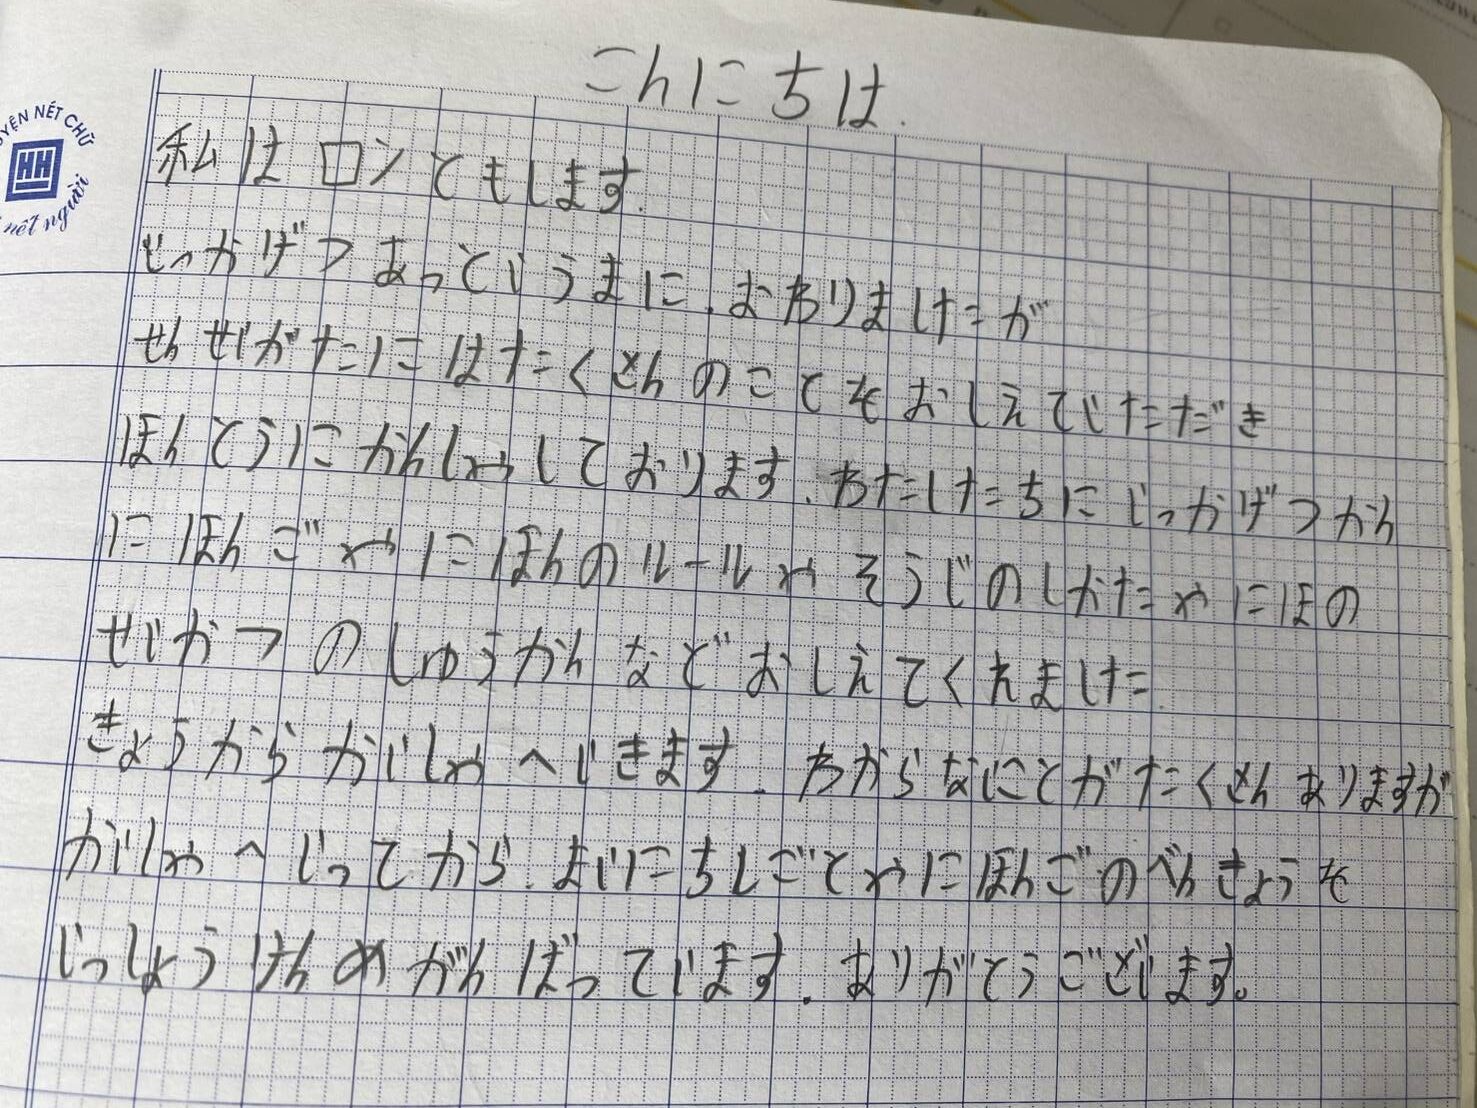 こんにちは.
私は ロンともします.
いっかげつ あっという まに.おわりましたが
せんせいがたにはたくさんのことをおしえていただき
ほんとうにかんしゃしております.わたしたちにいっかげつかん
にほんごやにほんのルールや そうじのしかたやにほの
せいかつのしゅうかん など おしえてくれました.
きょうからかいしゃへいきます. わからないことがたくさんありますが
がいしゃへいってから.まいにちしごとやにほんごのべんきょうを
いっしょうけんめがんばっています.ありがとうございます。
YỆN NÉT CHỮ
HH
nết người